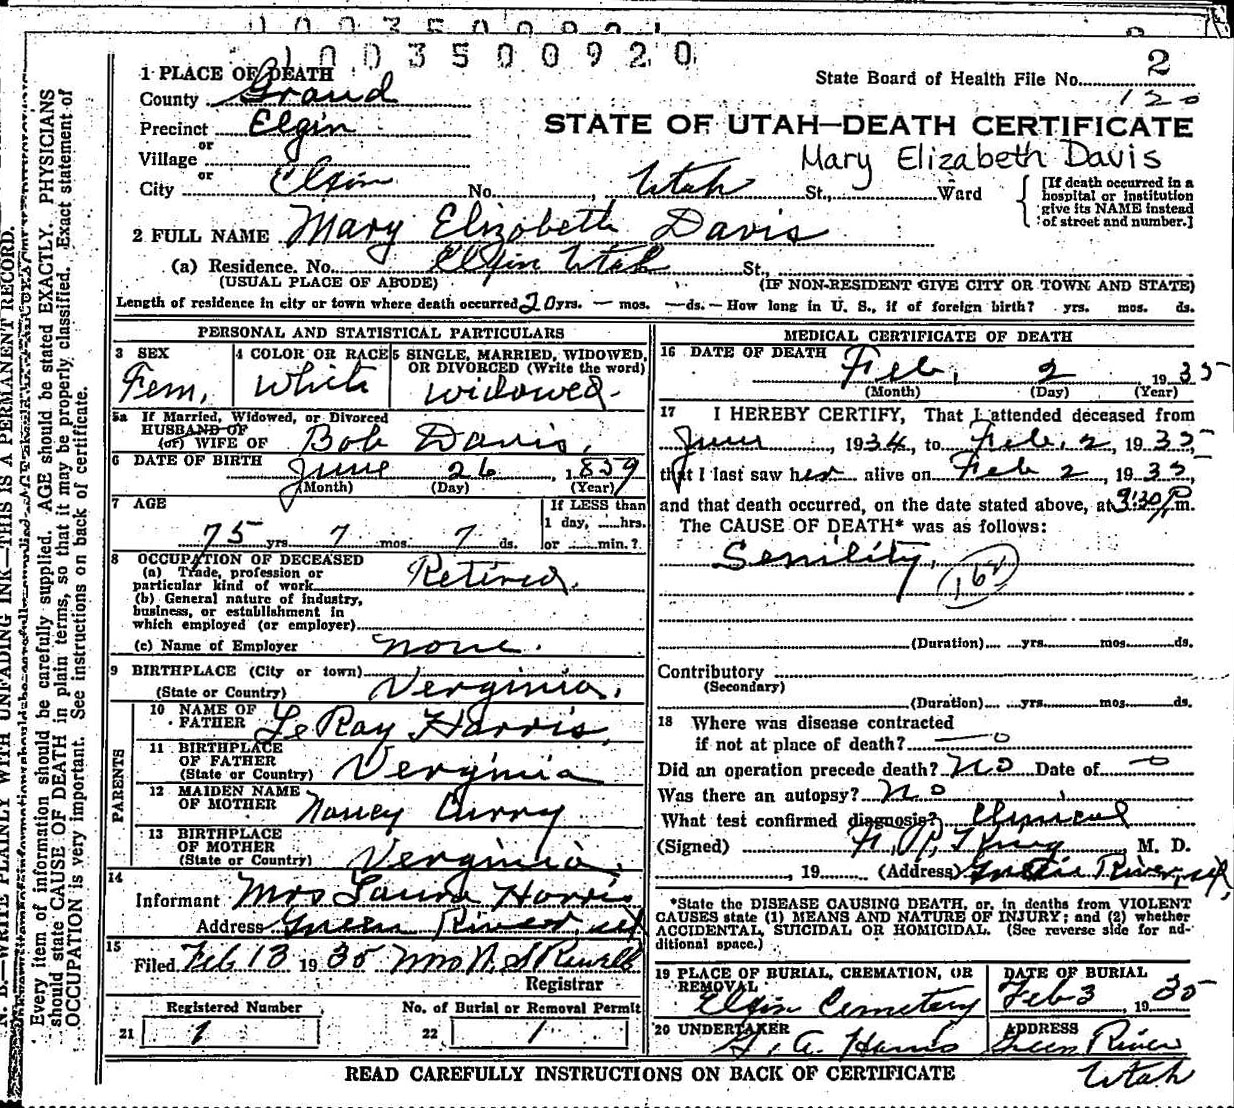 1003500920
1 PLACE OF DEATH
State Board of Health File No. 2
County Grand
120
Precinct Elgin
STATE OF UTAH—DEATH CERTIFICATE
or
Village
Mary Elizabeth Davis
or
City Elgin No. , Utah St., Ward
[If death occurred in a hospital or institution give its NAME instead of street and number.]
2 FULL NAME Mary Elizobeth Davis
(a) Residence. No. Elgin Utah St.,
(USUAL PLACE OF ABODE) (IF NON-RESIDENT GIVE CITY OR TOWN AND STATE)
Length of residence in city or town where death occurred 20 yrs. — mos. — ds. — How long in U. S., if of foreign birth? yrs. mos. ds.
PERSONAL AND STATISTICAL PARTICULARS
3 SEX
Fem.
4 COLOR OR RACE
White
5 SINGLE, MARRIED, WIDOWED,
OR DIVORCED (Write the word)
widowed.
5a If Married, Widowed, or Divorced
HUSBAND OF
(or) WIFE OF Bob Davis,
6 DATE OF BIRTH June 26 1859
(Month) (Day) (Year)
7 AGE
75 yrs. 7 mos. 7 ds.
If LESS than
1 day, hrs.
or min.?
8 OCCUPATION OF DECEASED
(a) Trade, profession or
particular kind of work Retired.
(b) General nature of industry,
business, or establishment in
which employed (or employer)
(c) Name of Employer none.
9 BIRTHPLACE (City or town)
(State or Country) Verginia.
PARENTS
10 NAME OF
FATHER LeRay Harris,
11 BIRTHPLACE
OF FATHER
(State or Country) Verginia
12 MAIDEN NAME
OF MOTHER Nancy Curry
13 BIRTHPLACE
OF MOTHER
(State or Country) Verginia,
14
Informant Mrs Laura Harris
Address Green River, ut
15
Filed Feb 13 1935 Mrs
Registrar
Registered Number
21 1
No. of Burial or Removal Permit
22 1
MEDICAL CERTIFICATE OF DEATH
16 DATE OF DEATH Feb. 2 1935
(Month) (Day) (Year)
17 I HEREBY CERTIFY, That I attended deceased from
June, 1934, to Feb. 2, 1935
that I last saw her alive on Feb 2, 1935,
and that death occurred, on the date stated above, at 9:30 P.m.
The CAUSE OF DEATH* was as follows:
Senility,
162
(Duration) yrs. mos. ds.
Contributory
(Secondary)
(Duration) yrs. mos. ds.
18 Where was disease contracted
if not at place of death? — o
Did an operation precede death? No Date of — o
Was there an autopsy? No
What test confirmed diagnosis? Clinical
(Signed) M. D.
, 19 (Address) Green River, ut,
*State the DISEASE CAUSING DEATH, or, in deaths from VIOLENT
CAUSES state (1) MEANS AND NATURE OF INJURY; and (2) whether
ACCIDENTAL, SUICIDAL OR HOMICIDAL. (See reverse side for ad-
ditional space.)
19 PLACE OF BURIAL, CREMATION, OR
REMOVAL
Elgin Cemetery
DATE OF BURIAL
Feb 3 1935
20 UNDERTAKER
G. A. Harris
ADDRESS
Green River
Utah
READ CAREFULLY INSTRUCTIONS ON BACK OF CERTIFICATE
N. B.—WRITE PLAINLY WITH UNFADING INK—THIS IS A PERMANENT RECORD.
Every item of information should be carefully supplied. AGE should be stated EXACTLY. PHYSICIANS
should state CAUSE OF DEATH in plain terms, so that it may be properly classified. Exact statement of
OCCUPATION is very important. See instructions on back of certificate.